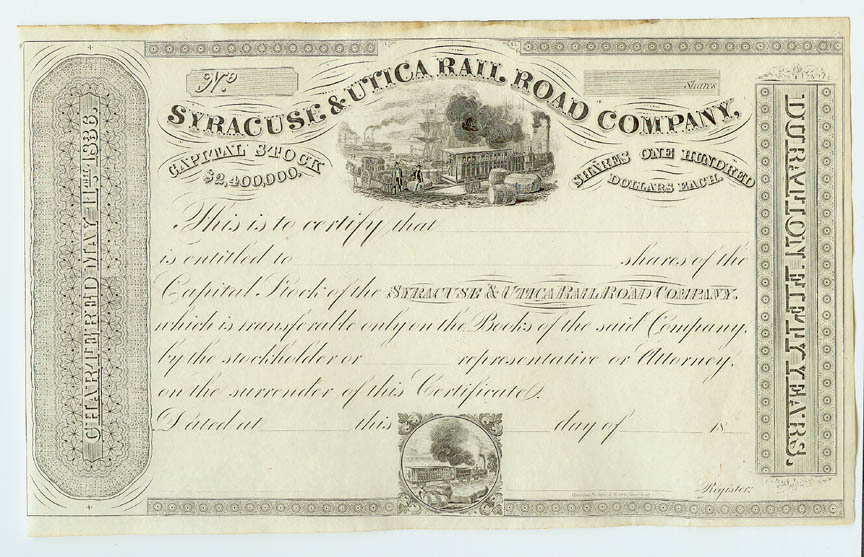 CHARTERED MAY 11th 1836.
No
Shares
SYRACUSE & UTICA RAIL ROAD COMPANY,
CAPITAL STOCK
$2,400,000.
SHARES ONE HUNDRED
DOLLARS EACH.
This is to certify that
is entitled to shares of the
Capital Stock of the SYRACUSE & UTICA RAIL ROAD COMPANY,
which is transferable only on the Books of the said Company,
by the stockholder or representative or Attorney,
on the surrender of this Certificate.
Dated at this day of 18
Register.
DURATION FIFTY YEARS.